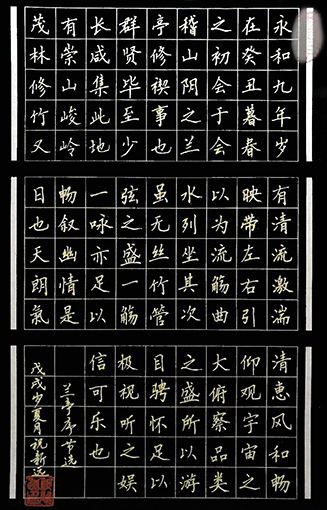 永和九年岁
在癸丑暮春
之初会于会
稽山阴之兰
亭修禊事也
群贤毕至少
长咸集此地
有崇山峻岭
茂林修竹又
有清流激湍
映带左右引
以为流觞曲
水列坐其次
虽无丝竹管
弦之盛一觞
一咏亦足以
畅叙幽情是
日也天朗氣
清惠风和畅
仰观宇宙之
大俯察品类
之盛所以游
目骋怀足以
极视听之娱
信可乐也
兰亭序节选
戊戌少夏月祝新